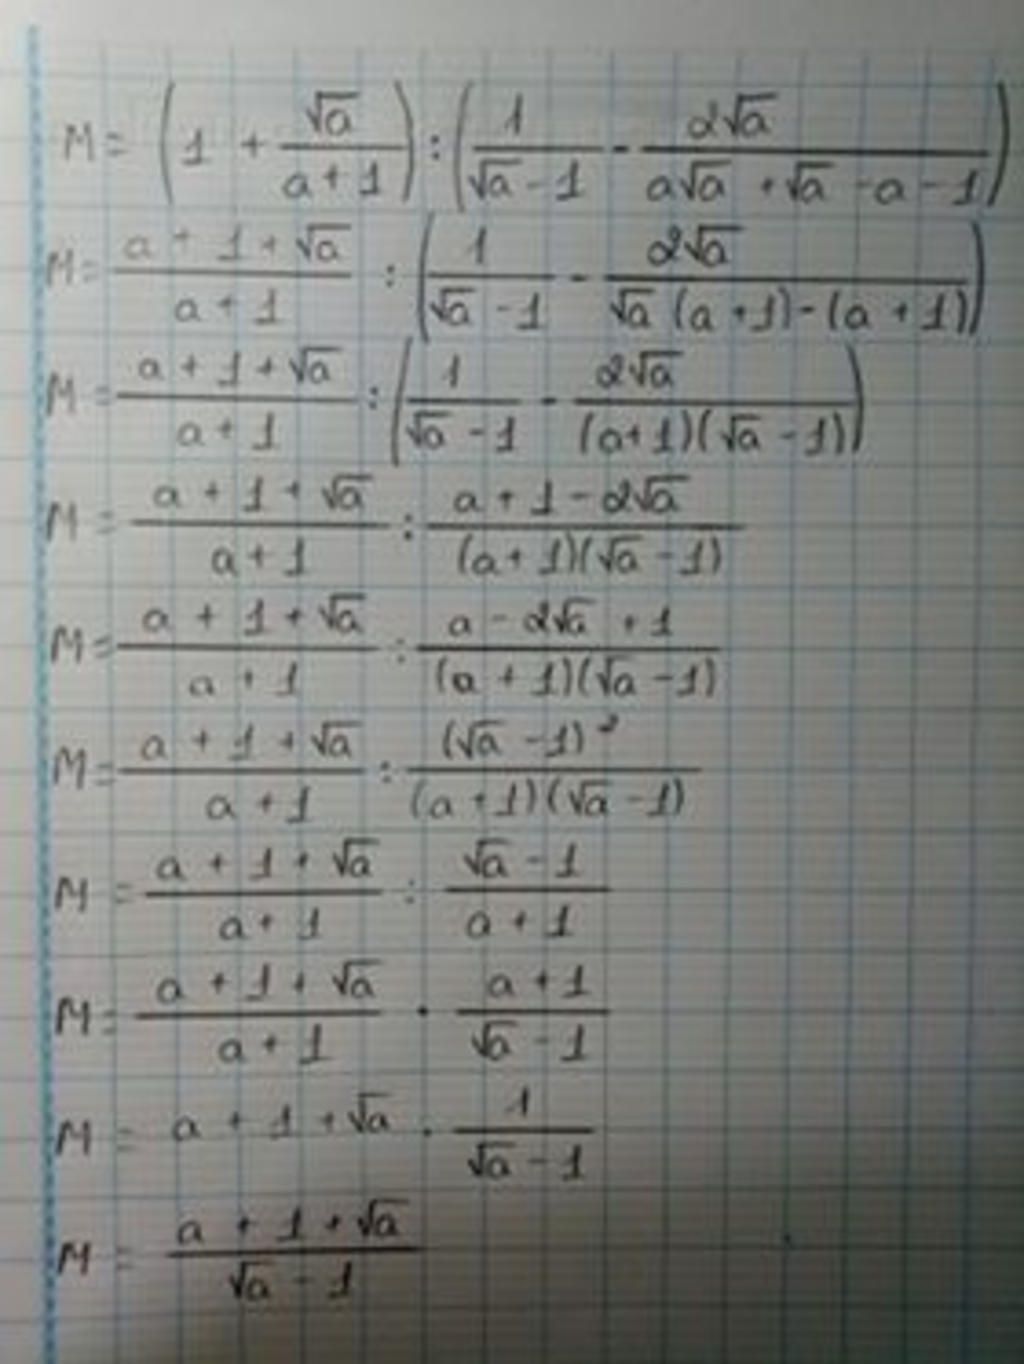 M = (1 + √a/(a + 1)) : (1/(√a - 1) - 2√a/(a√a + √a - a - 1))
M = (a + 1 + √a)/(a + 1) : (1/(√a - 1) - 2√a/(√a (a + 1) - (a + 1)))
M = (a + 1 + √a)/(a + 1) : (1/(√a - 1) - 2√a/((a + 1)(√a - 1)))
M = (a + 1 + √a)/(a + 1) : (a + 1 - 2√a)/((a + 1)(√a - 1))
M = (a + 1 + √a)/(a + 1) : (a - 2√a + 1)/((a + 1)(√a - 1))
M = (a + 1 + √a)/(a + 1) : (√a - 1)²/((a + 1)(√a - 1))
M = (a + 1 + √a)/(a + 1) : (√a - 1)/(a + 1)
M = (a + 1 + √a)/(a + 1) · (a + 1)/(√a - 1)
M = a + 1 + √a · 1/(√a - 1)
M = (a + 1 + √a)/(√a - 1)